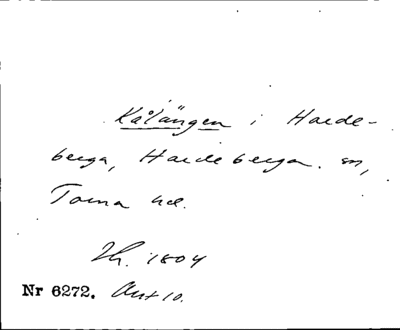 Kålängen i Harde-
berga, Hardeberga sn,
Torna hd.
Lh. 1804
Nr 6272. Ant 10.